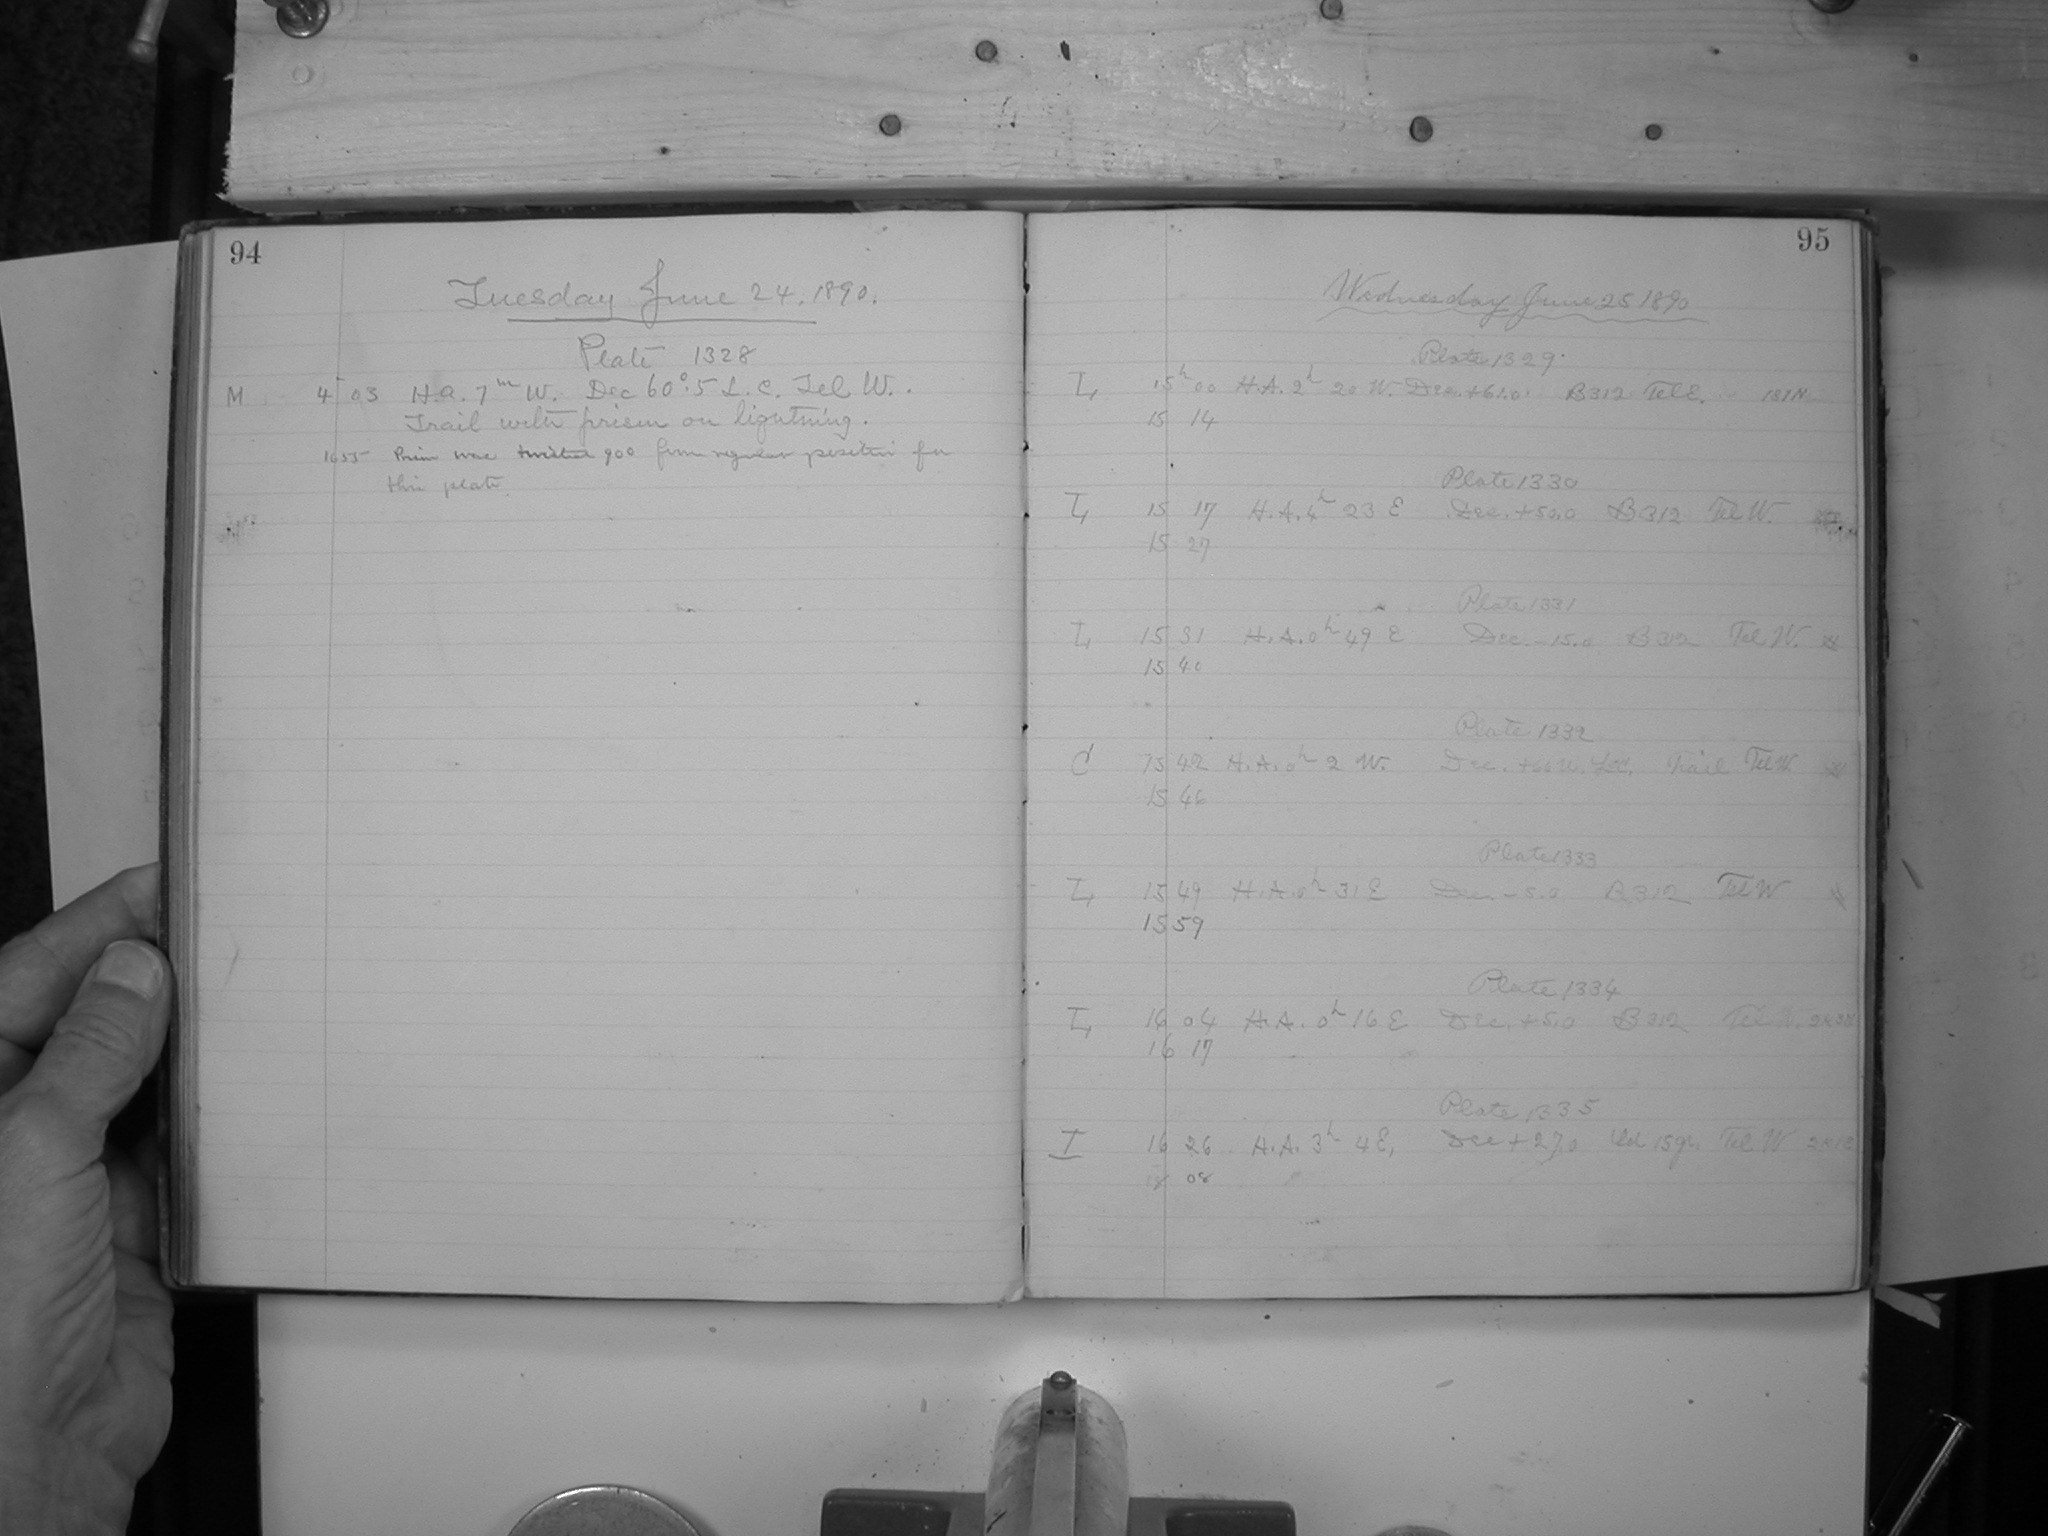 94
Tuesday June 24. 1890.
Plate 1328
M 4 03 H.a. 7m W. Dec 60°.5 L.C. Tel W.
Trail with prism on lightning.
Prism was twisted 90° from regular position for
this plate.
95
Wednesday June 25 1890
Plate 1329
L 15h 00 H.A. 2h 20 W. Dec. +61.0 B312 Tel E.
15 14
Plate 1330
L 15 17 H.A. 4h 23 E Dec. +50.0 B312 Tel W.
15 27
Plate 1331
L 15 31 H.A. 0h 49 E Dec. -15.0 B312 Tel W.
15 40
Plate 1332
C 15 42 H.A. 0h 2 W. Dec. Trail Tel W
15 46
Plate 1333
L 15 49 H.A. 0h 31 E Dec. -5.0 B312 Tel W
15 59
Plate 1334
L 16 04 H.A. 0h 16 E Dec. +5.0 B312 Tel W.
16 17
Plate 1335
I 16 26 H.A. 3h 4 E, Dec +27.0 Tel W
08